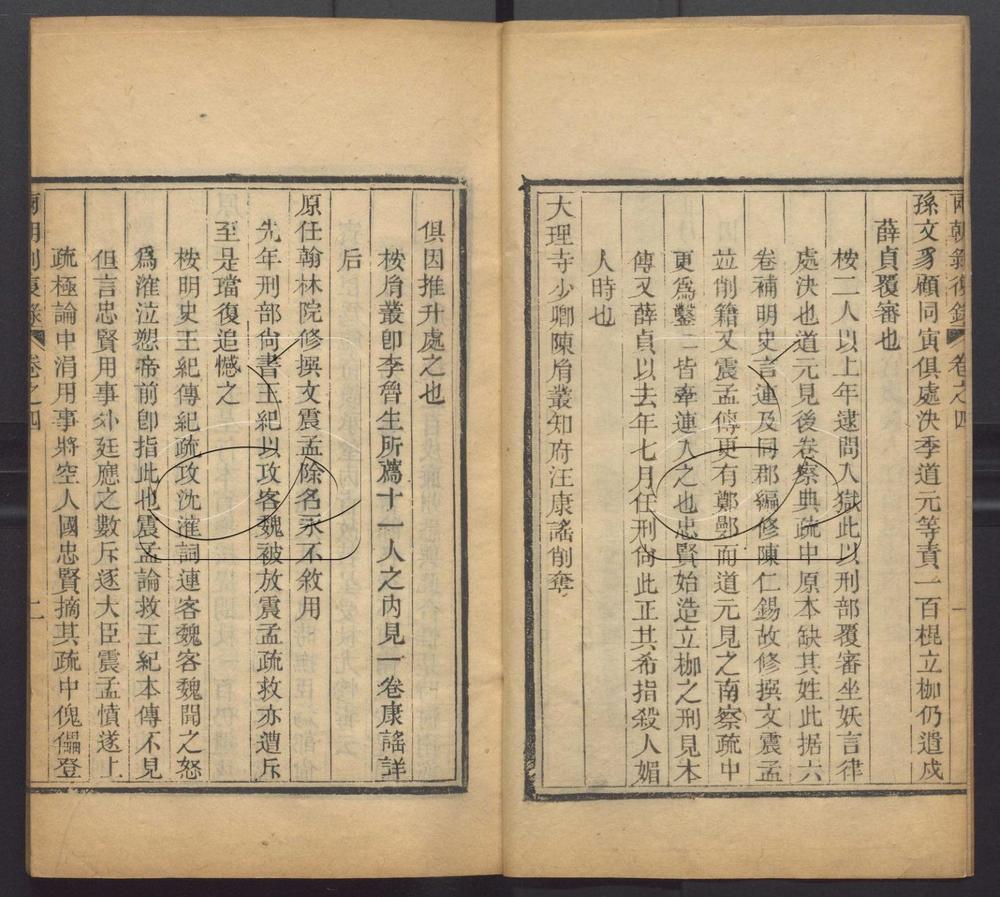 兩朝剝復錄 卷之四 一
孫文豸顧同寅俱處決季道元等責一百棍立枷仍遣戍
薛貞覆審也
桉二人以上年逮問入獄此以刑部覆審坐妖言律
處決也道元見後卷察典疏中原本缺其姓此据六
卷補明史言連及同郡編修陳仁錫故修撰文震孟
竝削籍又震孟傳更有鄭鄤而道元見之南察疏中
更爲鑿鑿皆牽連入之也忠賢始造立枷之刑見本
傳又薛貞以去年七月任刑尙此正其希指殺人媚
人時也
大理寺少卿陳胤叢知府汪康謠削奪
俱因推升處之也
桉胤叢卽李魯生所薦十一人之內見一卷康謠詳
后
原任翰林院修撰文震孟除名永不敘用
先年刑部尙書王紀以攻客魏被放震孟疏救亦遭斥
至是璫復追憾之
桉明史王紀傳紀疏攻沈㴶詞連客魏客魏聞之怒
爲㴶泣愬帝前卽指此也震孟論救王紀本傳不見
但言忠賢用事外廷應之數斥逐大臣震孟憤遂上
疏極論中涓用事將空人國忠賢摘其疏中傀儡登
兩朝剝復錄 卷之四 二